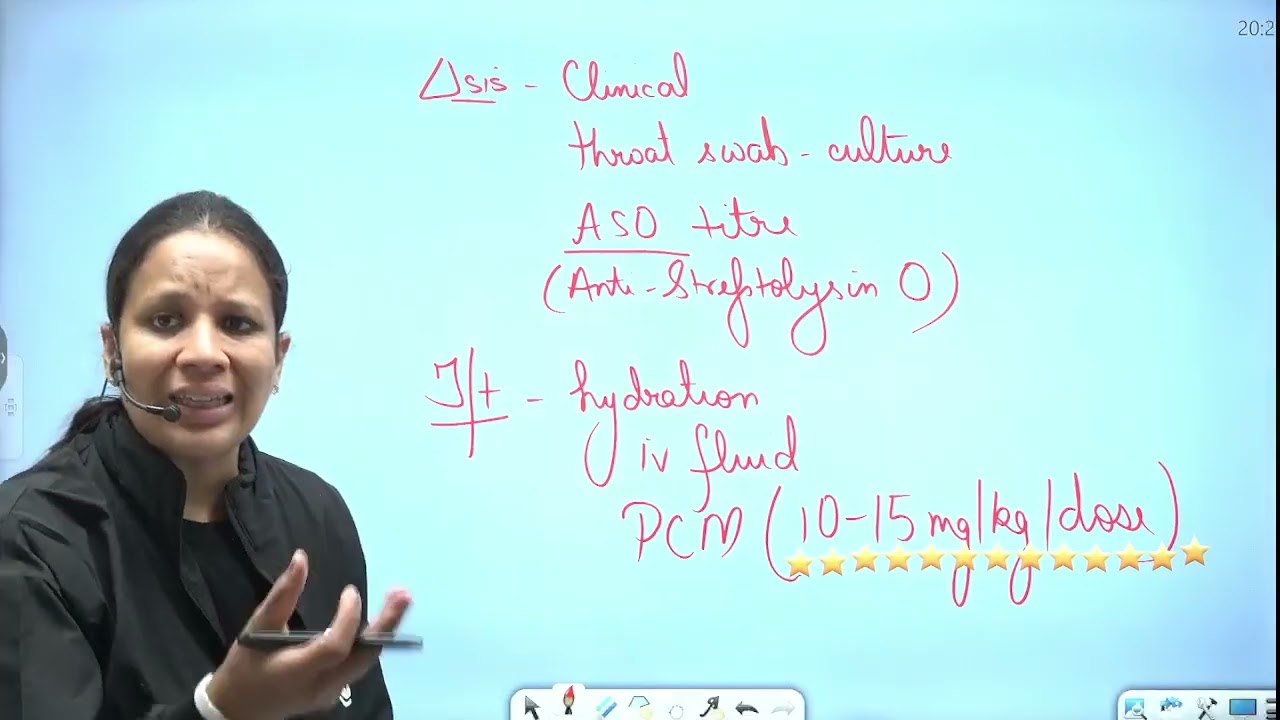 20:2
Δsis - Clinical
throat swab - culture
ASO titre
(Anti-Streptolysin O)
T/t - hydration
iv fluid
PCM (10-15 mg/kg/dose)